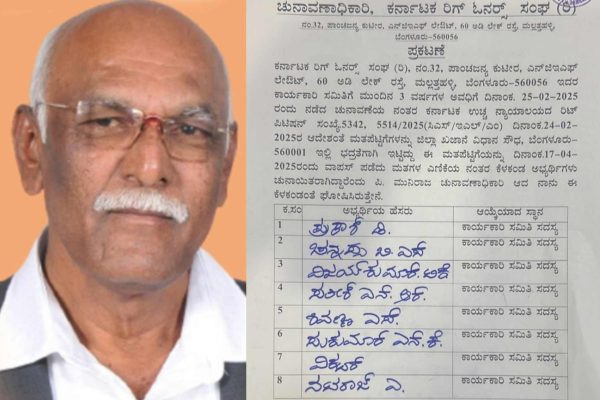 ಚುನಾವಣಾಧಿಕಾರಿ, ಕರ್ನಾಟಕ ರಿಗ್ ಓನರ್ಸ್ ಸಂಘ (ರಿ)
ನಂ.32, ಪಾಂಚಜನ್ಯ ಕುಟೀರ, ಎನ್‌ಜಿಇಎಫ್ ಲೇಔಟ್, 60 ಅಡಿ ಲೇಕ್ ರಸ್ತೆ, ಮಲ್ಲತ್ತಹಳ್ಳಿ,
ಬೆಂಗಳೂರು-560056
ಪ್ರಕಟಣೆ
ಕರ್ನಾಟಕ ರಿಗ್ ಓನರ್ಸ್ ಸಂಘ (ರಿ), ನಂ.32, ಪಾಂಚಜನ್ಯ ಕುಟೀರ, ಎನ್‌ಜಿಇಎಫ್
ಲೇಔಟ್, 60 ಅಡಿ ಲೇಕ್ ರಸ್ತೆ, ಮಲ್ಲತ್ತಹಳ್ಳಿ, ಬೆಂಗಳೂರು-560056 ಇದರ
ಕಾರ್ಯಕಾರಿ ಸಮಿತಿಗೆ ಮುಂದಿನ 3 ವರ್ಷಗಳ ಅವಧಿಗೆ ದಿನಾಂಕ. 25-02-2025
ರಂದು ನಡೆದ ಚುನಾವಣೆಯ ನಂತರ ಕರ್ನಾಟಕ ಉಚ್ಛ ನ್ಯಾಯಾಲಯದ ರಿಟ್
ಪಿಟಿಷನ್ ಸಂಖ್ಯೆ.5342, 5514/2025(ಸಿಎಸ್/ಇಎಲ್/ಎಂ) ದಿನಾಂಕ.24-02-
2025ರ ಆದೇಶಂತೆ ಮತಪೆಟ್ಟಿಗೆಗಳನ್ನು ಜಿಲ್ಲಾ ಖಜಾನೆ ವಿಧಾನ ಸೌಧ, ಬೆಂಗಳೂರು-
560001 ಇಲ್ಲಿ ಭದ್ರತೆಗಾಗಿ ಇಟ್ಟಿದ್ದು ಈ ಮತಪೆಟ್ಟಿಗೆಯನ್ನು ದಿನಾಂಕ.17-04-
2025ರಂದು ವಾಪಸ್ ಪಡೆದು ಮತಗಳ ಎಣಿಕೆಯ ನಂತರ ಕೆಳಕಂಡ ಅಭ್ಯರ್ಥಿಗಳು
ಚುನಾಯಿತರಾಗಿದ್ದಾರೆಂದು ಪಿ. ಮುನಿರಾಜ ಚುನಾವಣಾಧಿಕಾರಿ ಆದ ನಾನು ಈ
ಕೆಳಕಂಡಂತೆ ಘೋಷಿಸಿರುತ್ತೇನೆ.
ಕ.ಸಂ ಅಭ್ಯರ್ಥಿಯ ಹೆಸರು ಆಯ್ಕೆಯಾದ ಸ್ಥಾನ
1 ಕಾರ್ಯಕಾರಿ ಸಮಿತಿ ಸದಸ್ಯ
2 ಬಿ ಎಸ್ ಕಾರ್ಯಕಾರಿ ಸಮಿತಿ ಸದಸ್ಯ
3 ವಿಜಯ್ ಕುಮಾರ್ ಕಾರ್ಯಕಾರಿ ಸಮಿತಿ ಸದಸ್ಯ
4 ಸತೀಶ್ ಎನ್. ಆರ್. ಕಾರ್ಯಕಾರಿ ಸಮಿತಿ ಸದಸ್ಯ
5 ಶಿವಣ್ಣ ಎಸ್. ಕಾರ್ಯಕಾರಿ ಸಮಿತಿ ಸದಸ್ಯ
6 ಸುಕುಮಾರ್ ಎನ್.ಕೆ. ಕಾರ್ಯಕಾರಿ ಸಮಿತಿ ಸದಸ್ಯ
7 ಕಾರ್ಯಕಾರಿ ಸಮಿತಿ ಸದಸ್ಯ
8 ನಟರಾಜ್ ಎ. ಕಾರ್ಯಕಾರಿ ಸಮಿತಿ ಸದಸ್ಯ